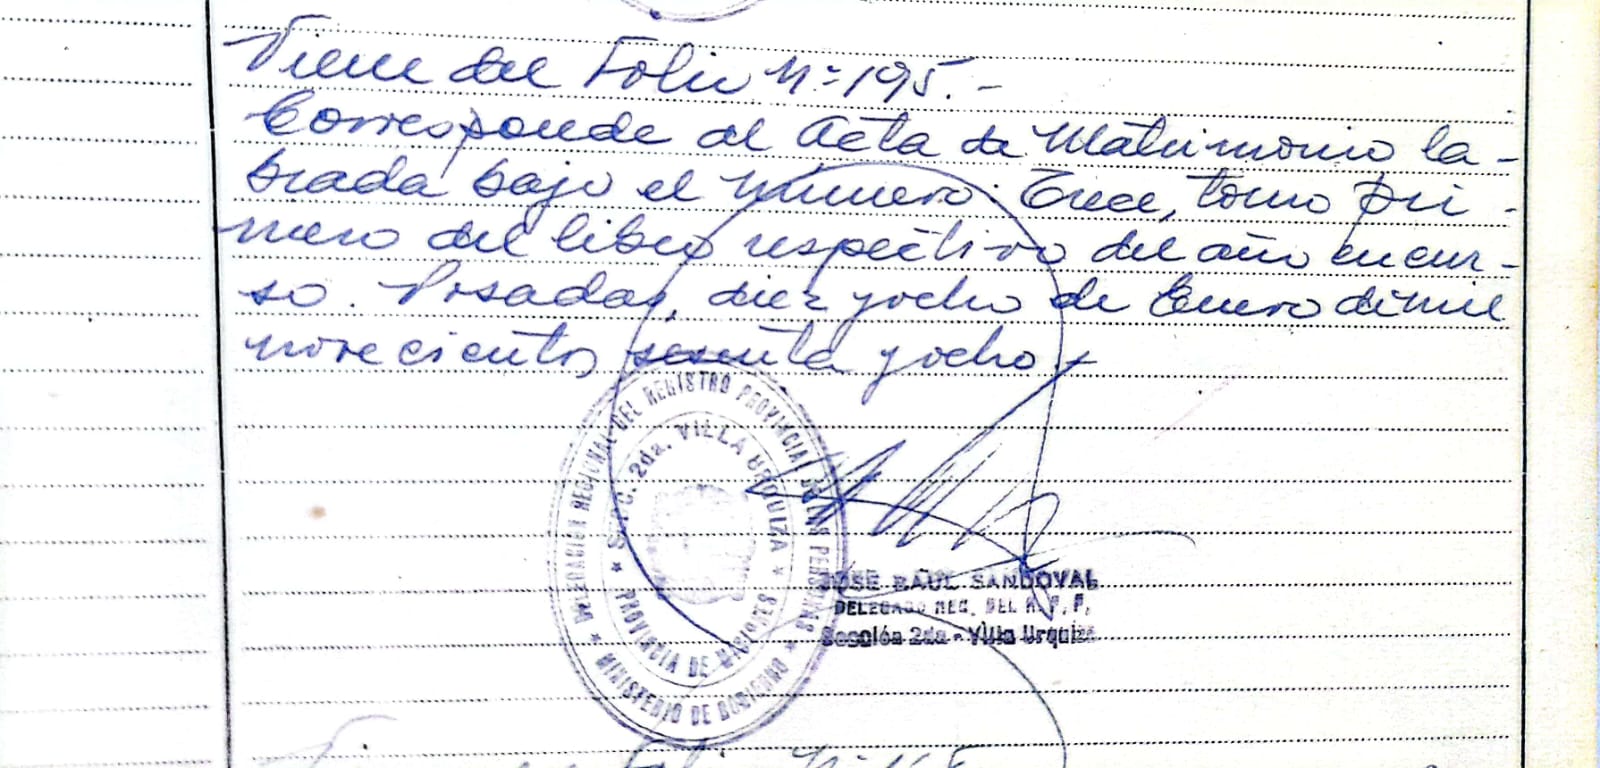 Viene del Folio Nº 195.-
Corresponde al Acta de Matrimonio la-
brada bajo el número Trece, tomo pri-
mero del libro respectivo del año en cur-
so. Posadas, diez y ocho de Enero de mil
novecientos sesenta y ocho
DELEGACION REGIONAL DEL REGISTRO PROVINCIAL DE LAS PERSONAS
S.P.C. 2da. VILLA URQUIZA
PROVINCIA DE MISIONES
MINISTERIO DE GOBIERNO
JOSE RAUL SANDOVAL
DELEGADO REG. DEL R. P. P.
Sección 2da - Villa Urquiza
Folio Nº